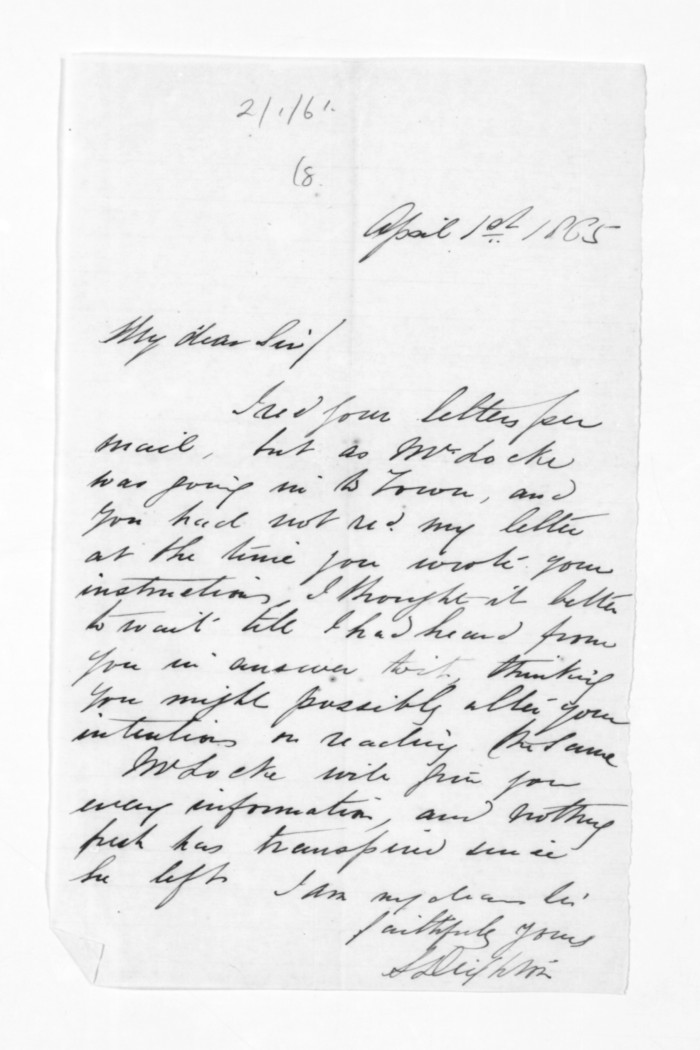 2/1/61.
18.
April 1st 1865
My dear Sir/
I recd your letters per
mail, but as Mr Locke
was going in to Town, and
you had not recd. my letter
at the time you wrote your
instructions, I thought it better
to wait till I had heard from
you in answer to it, thinking
you might possibly alter your
intentions on reading the same
Mr Locke will give you
every information, and nothing
fresh has transpired since
he left I am my dear Sir
faithfully yours
S Deighton